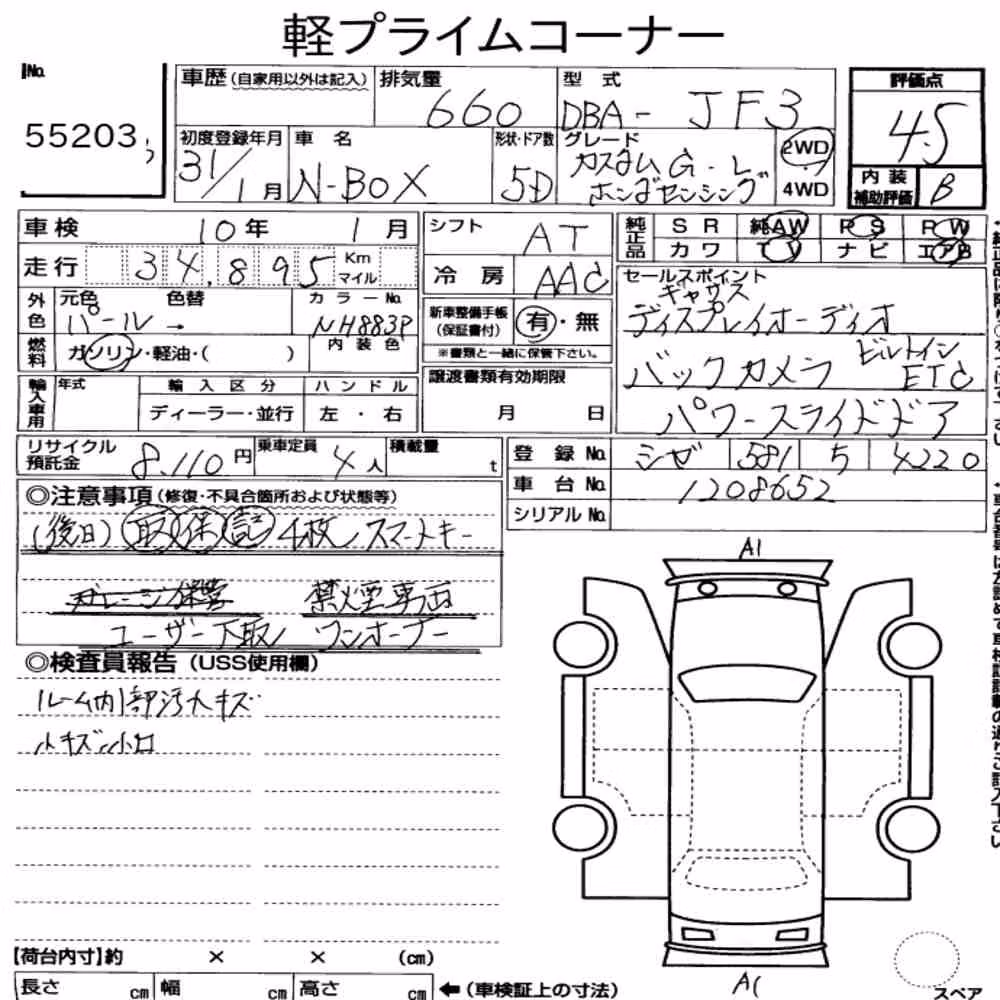 軽プライムコーナー
No.
55203
車歴(自家用以外は記入) 排気量 660
型式 DBA- JF3
評価点 4.5
内装補助評価 B
初度登録年月 31/1月
車名 N-BOX
形状・ドア数 5D
グレード カスタム G-L
ホンダセンシング
2WD
4WD
車検 10年 1月
走行 34,895 Km マイル
シフト AT
冷房 AAC
純正品 SR 純AW PS PW
カワ TV ナビ エアB
外色 元色 パール→ 色替 カラーNo. NH883P
燃料 ガソリン・軽油・( ) 内装色
新車整備手帳(保証書付) 有・無
※書類と一緒に保管下さい。
セールスポイント
ギャザズ
ディスプレイオーディオ
バックカメラ ビルトインETC
パワースライドドア
輸入車用 年式 輸入区分 ハンドル
ディーラー・並行 左・右
譲渡書類有効期限
月 日
リサイクル預託金 8,110円 乗車定員 4人 積載量 t
登録No. 581 5 4220
車台No. 1208652
シリアルNo.
◎注意事項(修復・不具合箇所および状態等)
(後日) 取 保 記 4枚 スマートキー
ガレージ保管 禁煙車両
ユーザー下取 ワンオーナー
◎検査員報告(USS使用欄)
ルーム内1部汚れキズ
小キズ小凹
A1
A1
【荷台内寸】約 × × (cm)
長さ cm 幅 cm 高さ cm ←(車検証上の寸法)
スペア